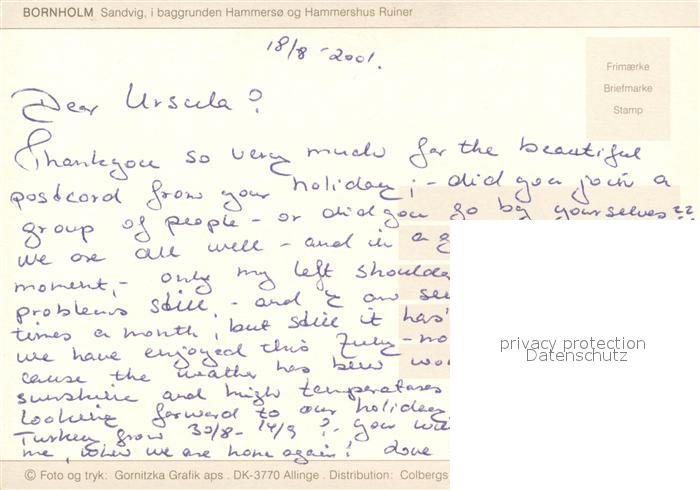 BORNHOLM Sandvig, i baggrunden Hammersø og Hammershus Ruiner
18/8 - 2001.
Frimærke
Briefmarke
Stamp
Dear Ursula?
Thankyou so very much for the beautiful
postcard from your holiday; - did you join a
group of people - or did you go by yourselves??
we are all well - and in a
moment, - only my left
problems still, - and I am
times a month, but still it has
we have enjoyed this July -
cause the weather has been
sunshine and high temperatures
Looking forward to our holiday
Turkey from 30/8 - 14/9 ? - you
me, when we are home again! Love
privacy protection
Datenschutz
© Foto og tryk: Gornitzka Grafik aps . DK-3770 Allinge . Distribution: Colbergs